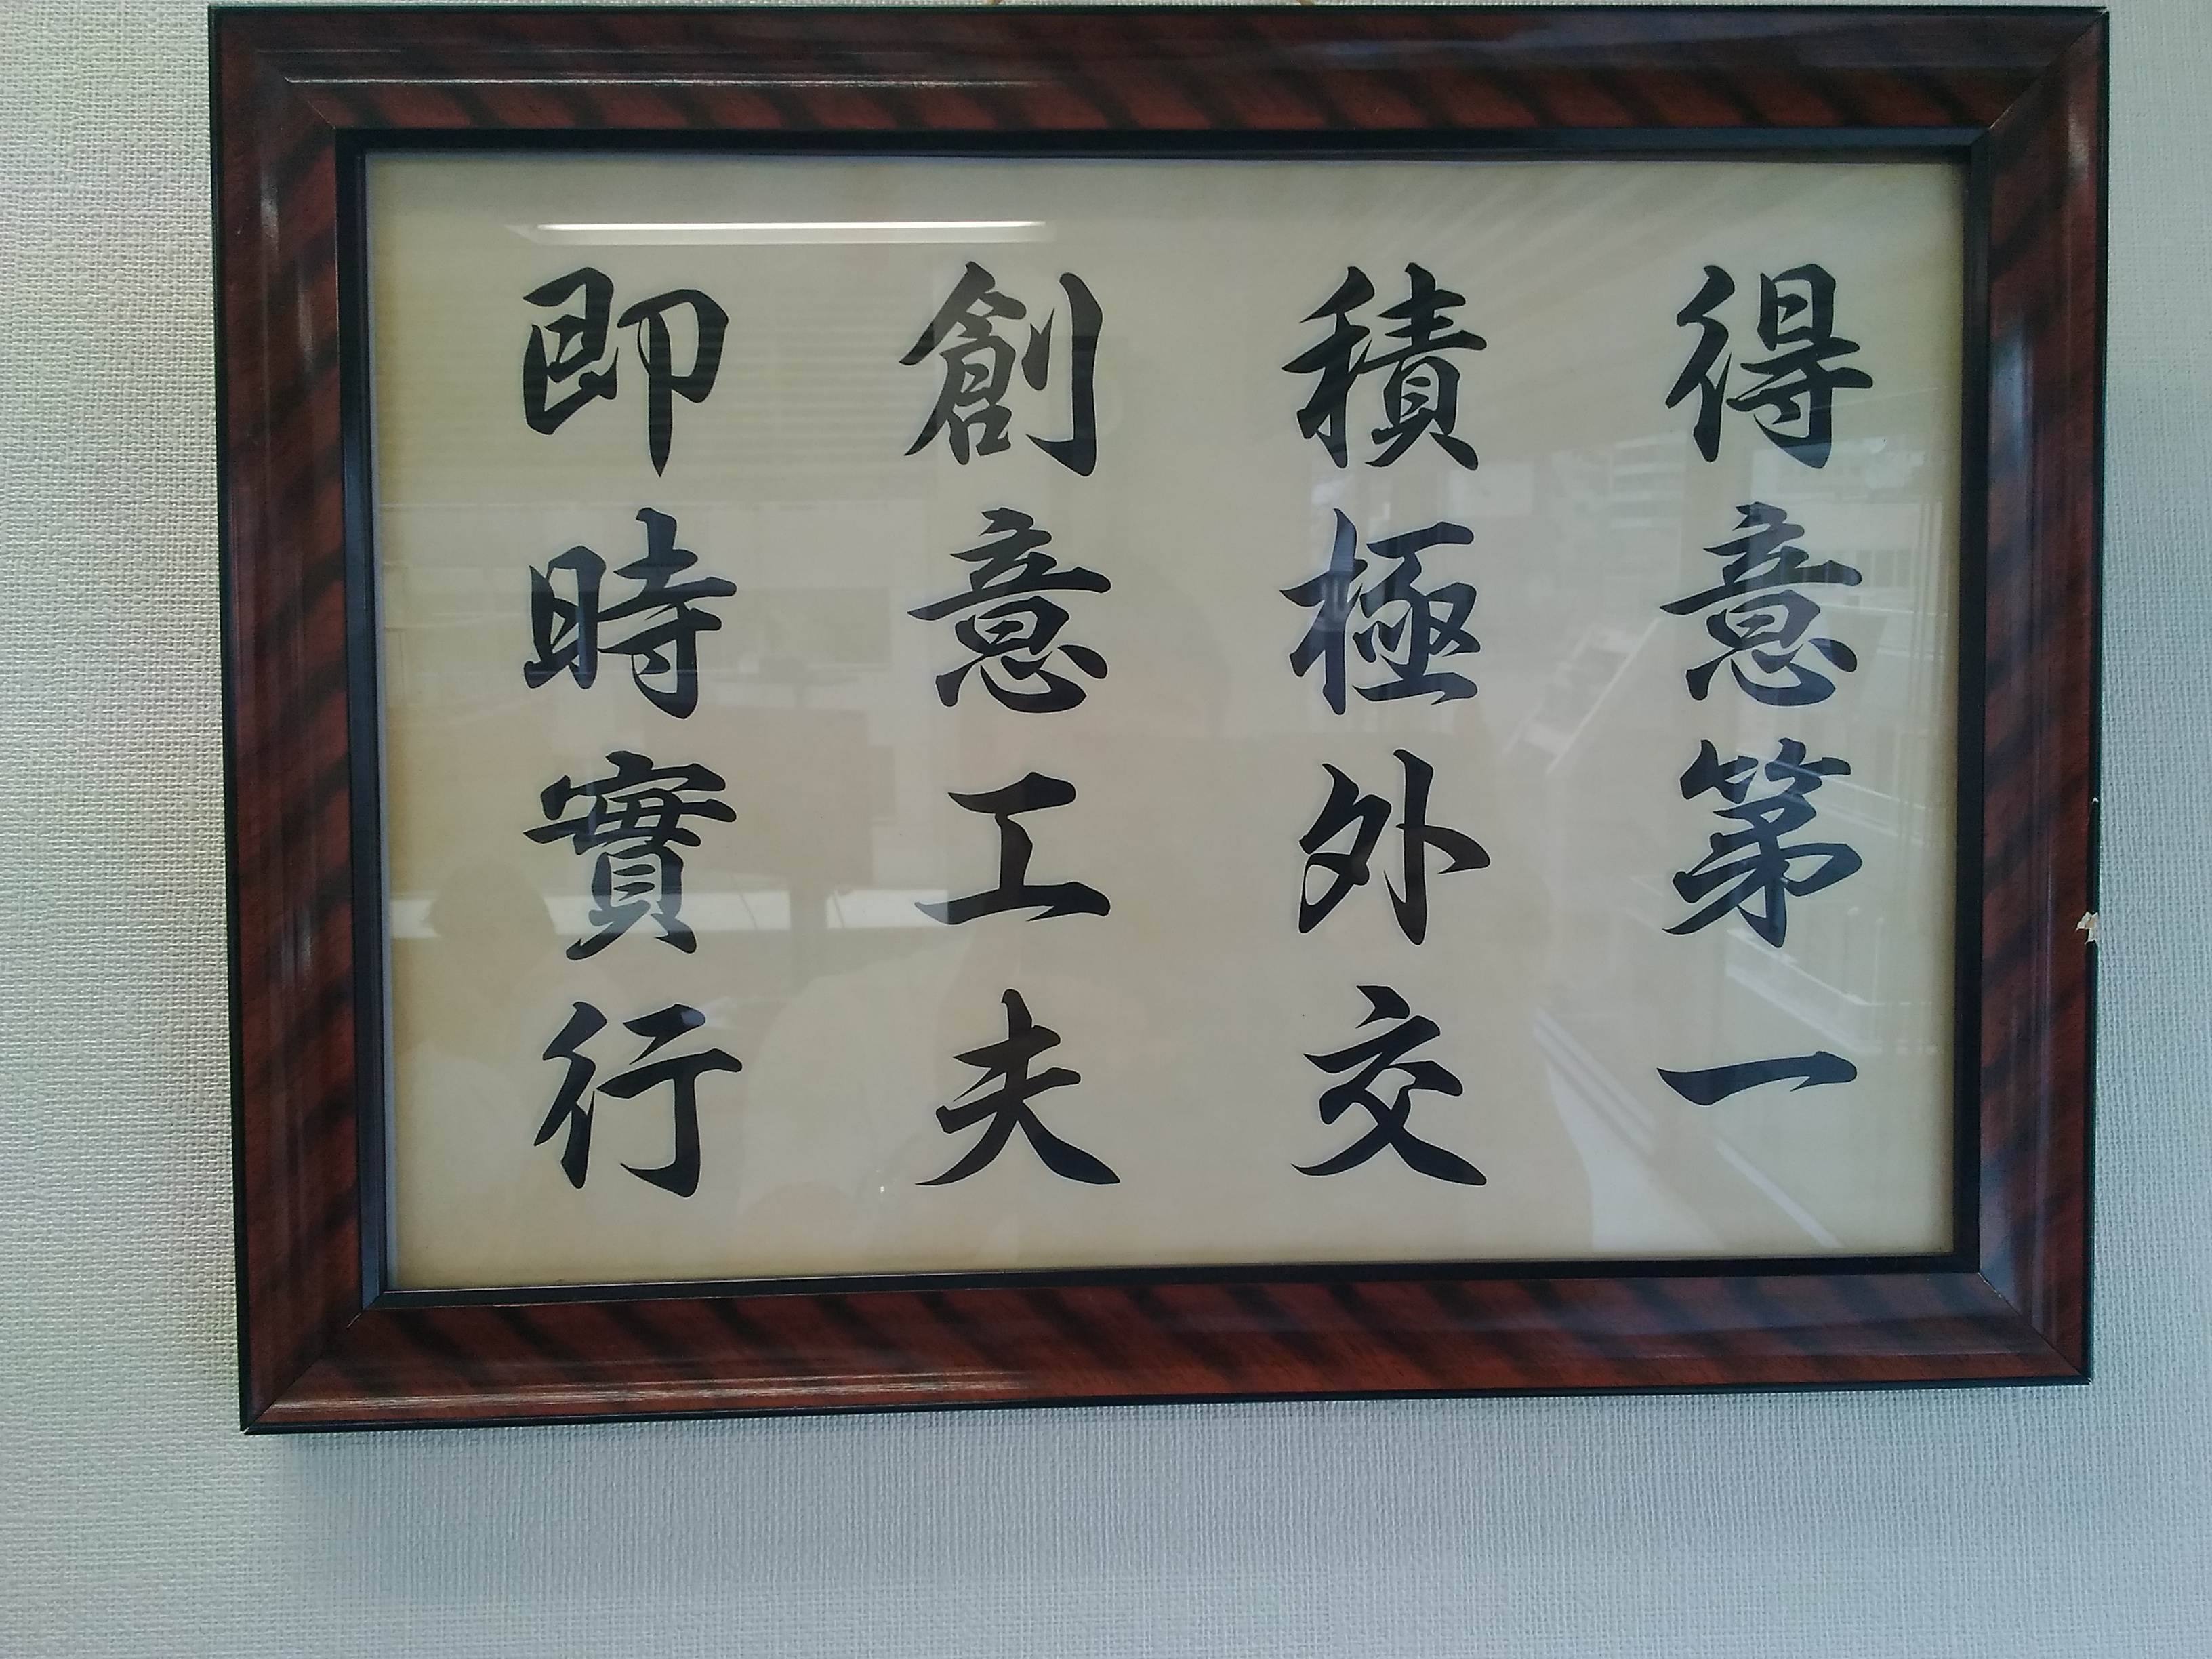 得意第一
積極外交
創意工夫
即時實行